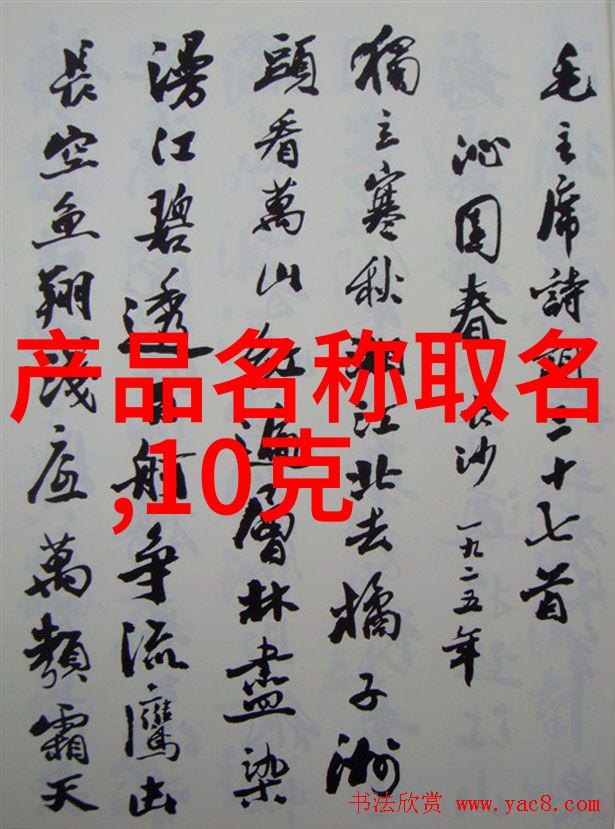 毛主席詩詞三十七首
沁園春 长沙 一九二五年
獨立寒秋湘江北去橘子洲
頭看萬山红遍層林盡染
漫江碧透百舸争流鷹击
長空鱼翔浅底萬類霜天
产品名称取名
,10克
书法欣赏 www.yac8.com